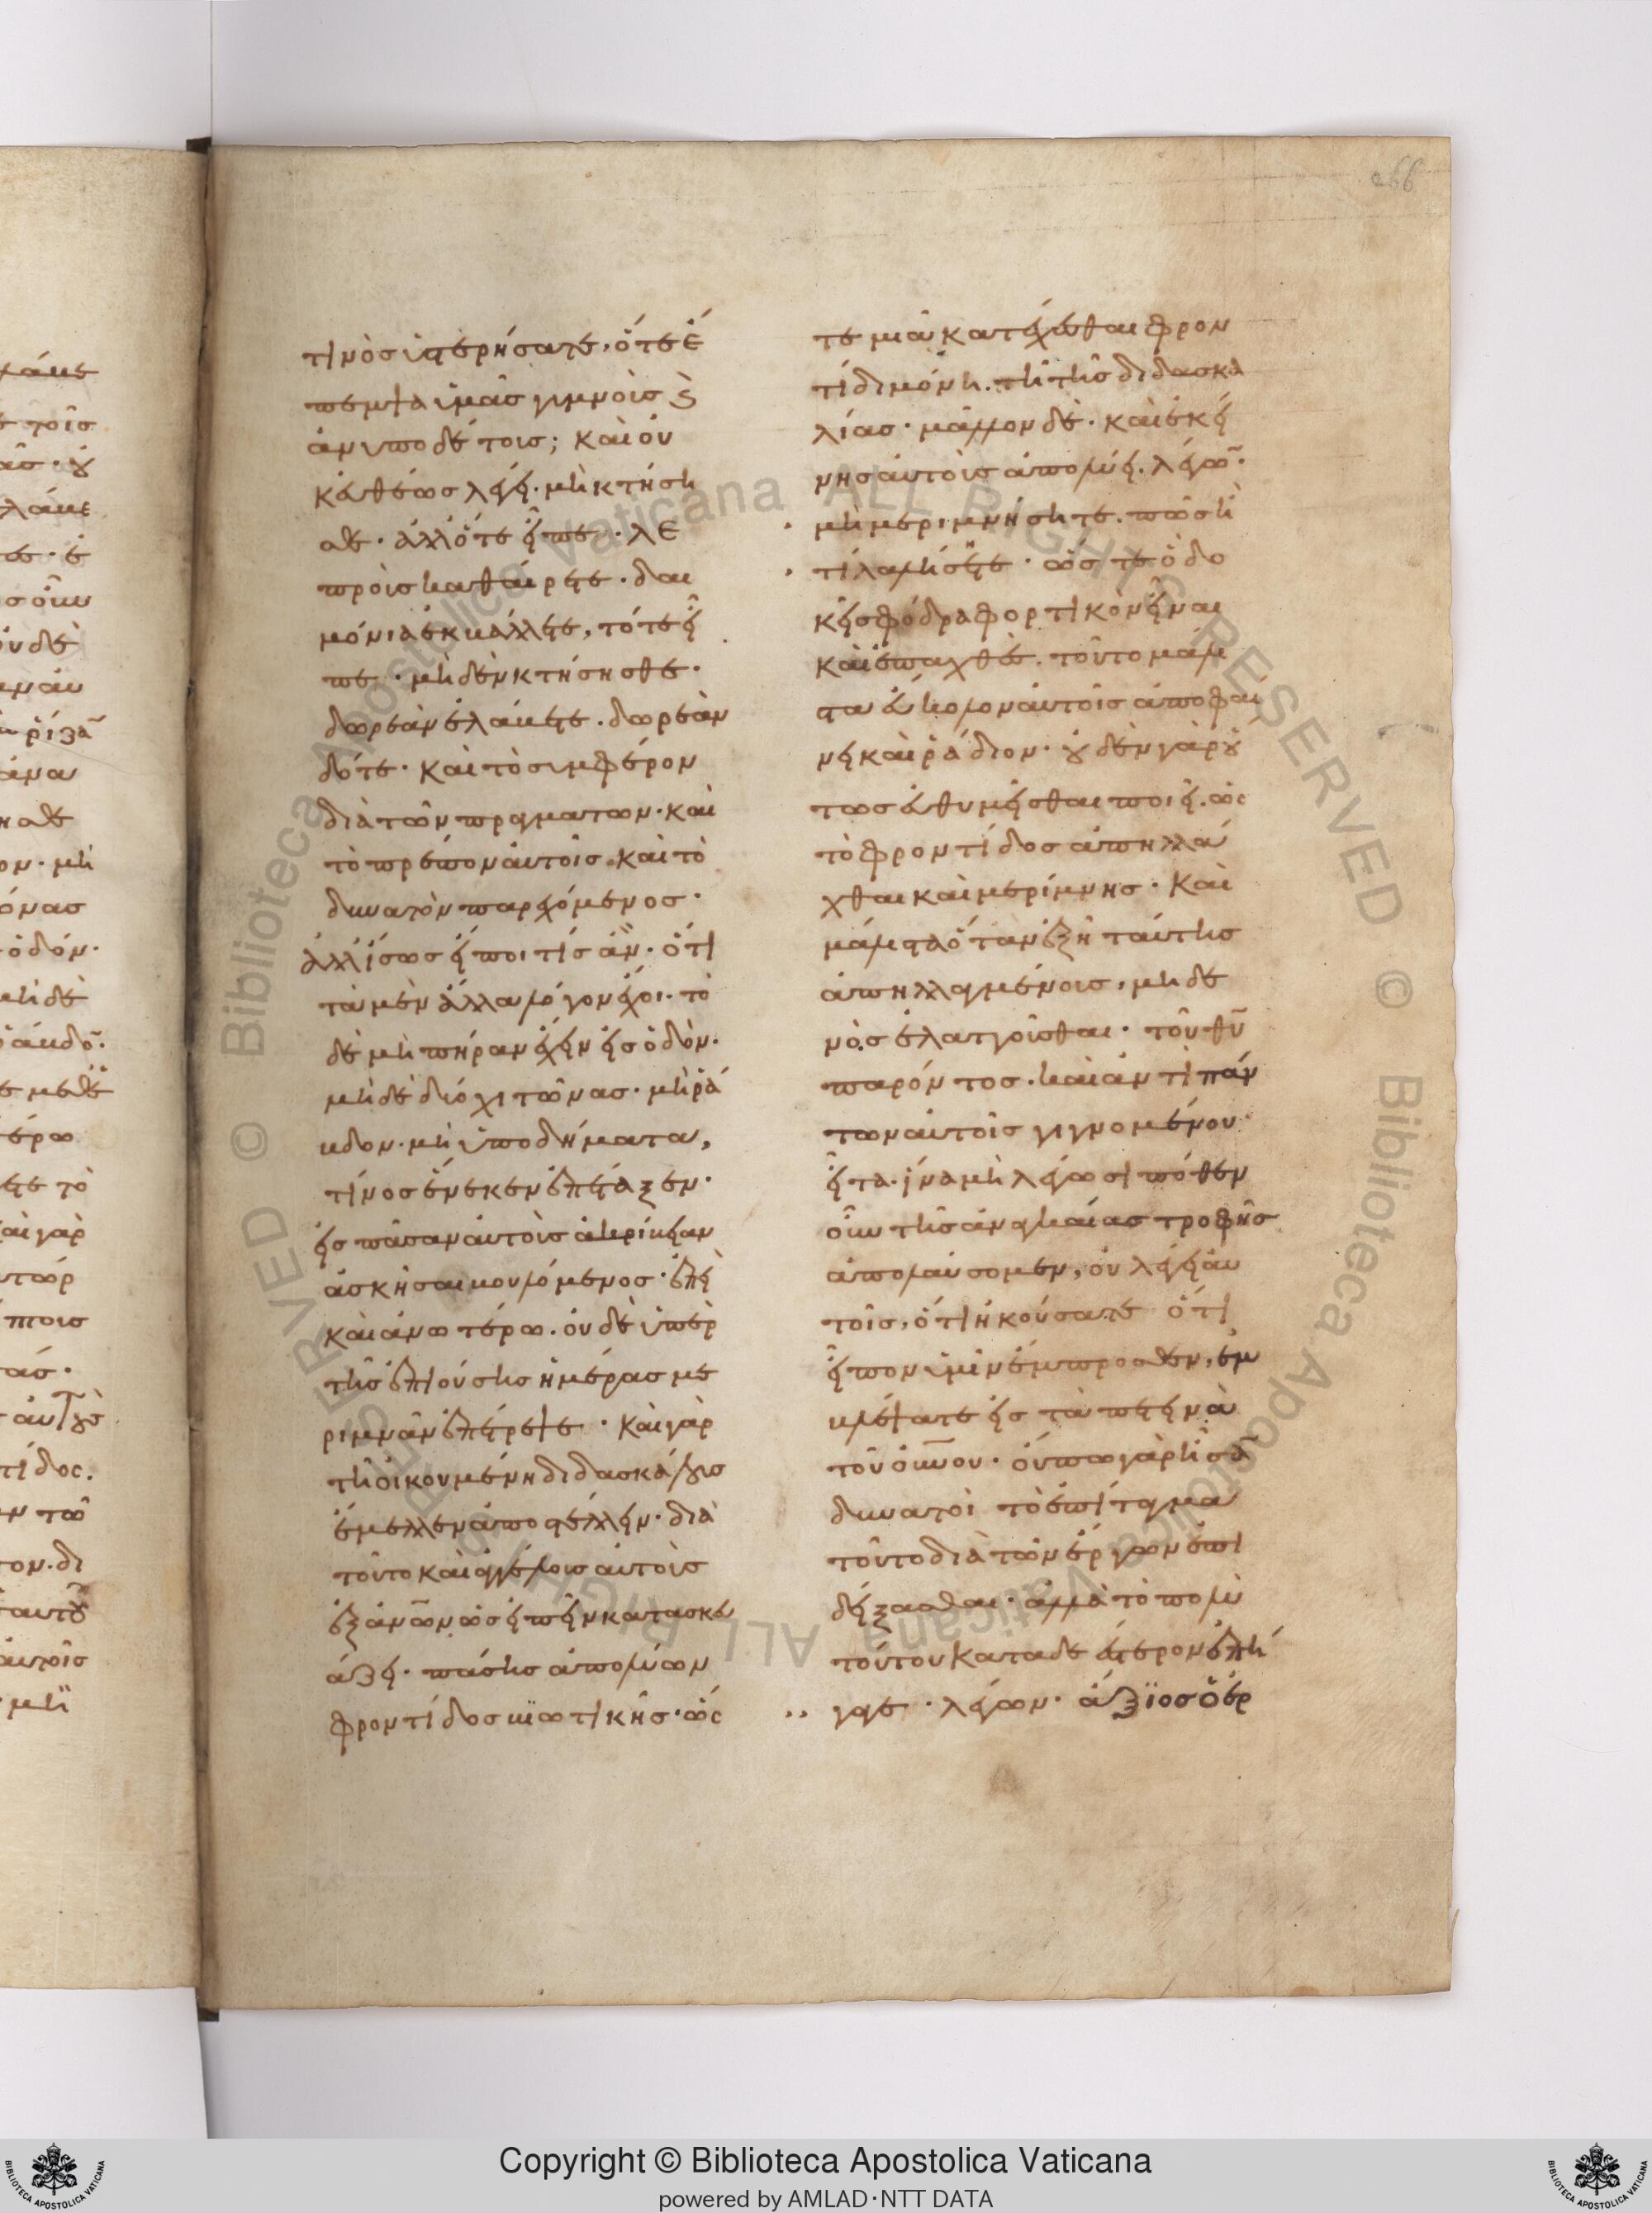 τινὸς ὑστερήσατε, ὅτε ἔ
πεμψα ὑμᾶς γυμνοὺς ϗ
ἀνυποδέτους; καὶ οὐ
κ εὐθέως λέγει· μὴ κτήση
σθε· ἀλλ ὅτε εἶπε· λε
προὺς καθαίρετε· δαι
μόνια ἐκβάλλετε, τότε εἶ
πε· μὴ δὲν κτήσησθε·
δωρεὰν ἐλάβετε· δωρεὰν
δότε· καὶ τὸ συμφέρον
διὰ τῶν πραγμάτων· καὶ
τὸ πρέπον αὐτοῖς· καὶ τὸ
δυνατὸν παρεχόμενος·
ἀλλ ἴσως εἴποι τίς ἂν· ὅτι
τὰ μὲν ἄλλα λόγον ἔχοι· τὸ
δὲ μὴ πήραν ἔχειν εἰς ὁδὸν·
μὴ δὲ δύο χιτῶνας· μὴ ῥά
βδον· μὴ ὑποδήματα,
τίνος ἕνεκεν ἐπέταξεν·
εἰς πᾶσαν αὐτοὺς ἀκρίβειαν
ἀσκῆσαι βουλόμενος· ἐπεὶ
καὶ ἀνωτέρω· οὐδὲ ὑπὲρ
τῆς ἐπιούσης ἡμέρας με
ριμνᾶν ἐπέτρεψε· καὶ γὰρ
τῇ οἰκουμένη διδασκάλους
ἔμελλεν ἀποστέλλειν· διὰ
τοῦτο καὶ ἀγγέλους αὐτοὺς
ἐξ ἀνῶν ὡς εἰπεῖν κατασκευ
άζει· πάσης ἀπολύων
φροντίδος βιωτικῆς· ὥς
τε μιᾶ κατέχεσθαι φρον
τίδι μόνη· τῆ τῆς διδασκα
λίας· μᾶλλον δὲ· καὶ ἐκεί
νης αὐτοὺς ἀπολύει· λέγων·
μὴ μεριμνήσητε· πῶς ἢ
τί λαλήσητε· ὥστε ὃ δο
κεῖ σφόδρα φορτικὸν εἶναι
καὶ ἐπαχθὲς· τοῦτο μάλι
στα εὔκολον αὐτοῖς ἀποφαί
νει καὶ ῥάδιον· οὐδὲν γὰρ οὕ
τως εὐθυμεῖσθαι ποιεῖ· ὡς
τὸ φροντίδος ἀπηλλά
χθαι καὶ μερίμνης· καὶ
μάλιστα ὅταν ἐξῆ ταύτης
ἀπηλλαγμένοις, μὴ δε
νὸς ἐλαττοῦσθαι· τοῦ θῦ
παρόντος· καὶ ἀντὶ πάν
των αὐτοῖς γιγνομένου·
εἶτα· ἵνα μὴ λέγωσι πόθεν
οὖν τῆς ἀναγκαίας τροφῆς
ἀπολαύσομεν, οὐ λέγει αὐ
τοῖς, ὅτι ἠκούσατε ὅτι
εἶπον ὑμῖν ἔμπροσθεν, ἐμ
βλέψατε εἰς τὰ πετεινὰ
τοῦ οὐνου· οὔπω γὰρ ἦσαν
δυνατοὶ τὸ ἐπίταγμα
τοῦτο διὰ τῶν ἔργων ἐπι
δείξασθαι· ἀλλὰ τὸ πολὺ
τούτου καταδεέστερον ἐπή
γαγε· λέγων· ἄξιος ὁ ἐρ
Copyright © Biblioteca Apostolica Vaticana
powered by AMLAD·NTT DATA